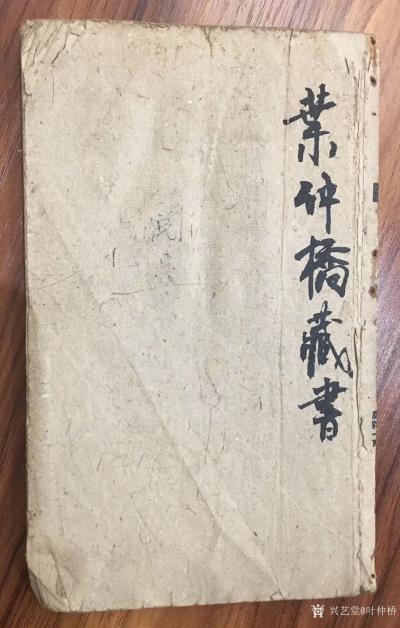 葉仲橋藏書
兴艺堂@叶仲桥